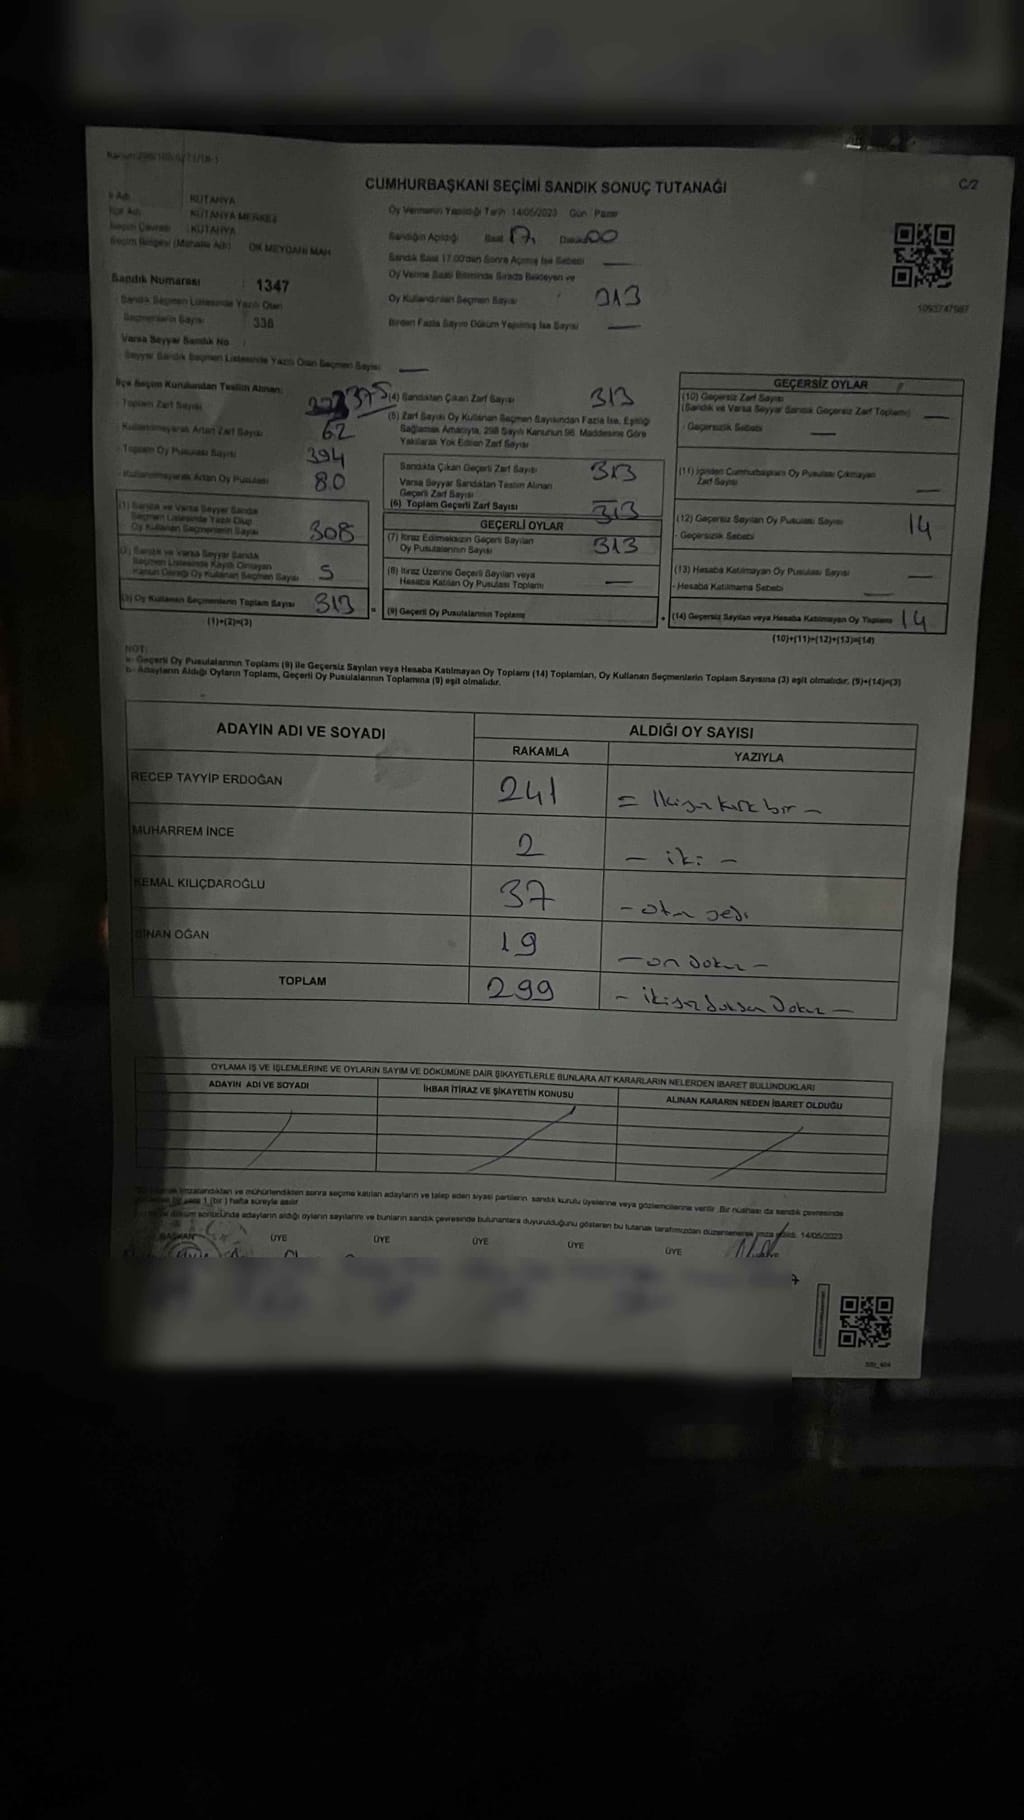 CUMHURBAŞKANI SEÇİMİ SANDIK SONUÇ TUTANAĞI
C/2
İl Adı : KÜTAHYA
İlçe Adı : KÜTAHYA MERKEZ
Seçim Çevresi : KÜTAHYA
Seçim Bölgesi (Mahalle Adı) : OK MEYDANI MAH
Oy Vermenin Yapıldığı Tarih 14/05/2023 Gün : Pazar
Sandığın Açıldığı Saat 17, Dakika 00
Sandık Saat 17.00'den Sonra Açılmış İse Sebebi —
Oy Verme Saati Bitiminde Sırada Bekleyen ve
Oy Kullandırılan Seçmen Sayısı : 313
Birden Fazla Sayım Döküm Yapılmış İse Sayısı —
Sandık Numarası : 1347
Sandık Seçmen Listesinde Yazılı Olan
Seçmenlerin Sayısı : 338
Varsa Seyyar Sandık No :
Seyyar Sandık Seçmen Listesinde Yazılı Olan Seçmen Sayısı —
İlçe Seçim Kurulundan Teslim Alınan:
- Toplam Zarf Sayısı 375
- Kullanılmayarak Artan Zarf Sayısı 62
- Toplam Oy Pusulası Sayısı 394
- Kullanılmayarak Artan Oy Pusulası 80
(1) Sandık ve Varsa Seyyar Sandık
Seçmen Listesinde Yazılı Olup
Oy Kullanan Seçmenlerin Sayısı 308
(2) Sandık ve Varsa Seyyar Sandık
Seçmen Listesinde Kayıtlı Olmayan
Kanun Gereği Oy Kullanan Seçmen Sayısı 5
(3) Oy Kullanan Seçmenlerin Toplam Sayısı 313
(1)+(2)=(3)
(4) Sandıktan Çıkan Zarf Sayısı 313
(5) Zarf Sayısı Oy Kullanan Seçmen Sayısından Fazla İse, Eşitliği
Sağlamak Amacıyla, 298 Sayılı Kanunun 98. Maddesine Göre
Yakılarak Yok Edilen Zarf Sayısı
Sandıkta Çıkan Geçerli Zarf Sayısı 313
Varsa Seyyar Sandıktan Teslim Alınan
Geçerli Zarf Sayısı —
(6) Toplam Geçerli Zarf Sayısı 313
GEÇERLİ OYLAR
(7) İtiraz Edilmeksizin Geçerli Sayılan
Oy Pusulalarının Sayısı 313
(8) İtiraz Üzerine Geçerli Sayılan veya
Hesaba Katılan Oy Pusulası Toplamı —
(9) Geçerli Oy Pusulalarının Toplamı
GEÇERSİZ OYLAR
(10) Geçersiz Zarf Sayısı
(Sandık ve Varsa Seyyar Sandık Geçersiz Zarf Toplamı) —
- Geçersizlik Sebebi —
(11) İçinden Cumhurbaşkanı Oy Pusulası Çıkmayan
Zarf Sayısı —
(12) Geçersiz Sayılan Oy Pusulası Sayısı 14
- Geçersizlik Sebebi
(13) Hesaba Katılmayan Oy Pusulası Sayısı —
- Hesaba Katılmama Sebebi —
(14) Geçersiz Sayılan veya Hesaba Katılmayan Oy Toplamı 14
(10)+(11)+(12)+(13)=(14)
NOT:
a- Geçerli Oy Pusulalarının Toplamı (9) ile Geçersiz Sayılan veya Hesaba Katılmayan Oy Toplamı (14) Toplamları, Oy Kullanan Seçmenlerin Toplam Sayısına (3) eşit olmalıdır. (9)+(14)=(3)
b- Adayların Aldığı Oyların Toplamı, Geçerli Oy Pusulalarının Toplamına (9) eşit olmalıdır.
ADAYIN ADI VE SOYADI
ALDIĞI OY SAYISI
RAKAMLA YAZIYLA
RECEP TAYYİP ERDOĞAN 241 = İkiyüz kırk bir –
MUHARREM İNCE 2 – iki –
KEMAL KILIÇDAROĞLU 37 – otuz yedi
SİNAN OĞAN 19 – on Dokuz –
TOPLAM 299 – ikiyüz Doksan Dokuz –
OYLAMA İŞ VE İŞLEMLERİNE VE OYLARIN SAYIM VE DÖKÜMÜNE DAİR ŞİKAYETLERLE BUNLARA AİT KARARLARIN NELERDEN İBARET BULUNDUKLARI
ADAYIN ADI VE SOYADI
İHBAR İTİRAZ VE ŞİKAYETİN KONUSU
ALINAN KARARIN NEDEN İBARET OLDUĞU
imzalandıktan ve mühürlendikten sonra seçime katılan adayların ve talep eden siyasi partilerin sandık kurulu üyelerine veya gözlemcilerine verilir. Bir nüshası da sandık çevresinde
1 (bir) hafta süreyle asılır.
döküm sonucunda adayların aldığı oyların sayılarını ve bunların sandık çevresinde bulunanlara duyurulduğunu gösteren bu tutanak tarafımızdan düzenlenerek imza edildi. 14/05/2023
BAŞKAN ÜYE ÜYE ÜYE ÜYE ÜYE